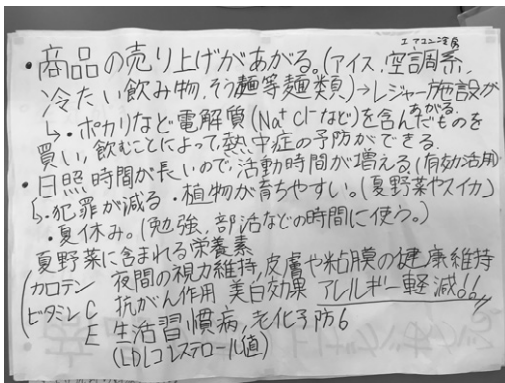 エアコン冷房
・商品の売り上げがあがる。(アイス、空調系、
冷たい飲み物、そう麺等麺類)→レジャー施設が
あがる.
↳・ポカリなど電解質(Na⁺ Cl⁻など)を含んだものを
買い、飲むことによって、熱中症の予防ができる.
・日照時間が長いので、活動時間が増える(有効活用)
↳・犯罪が減る ・植物が育ちやすい。(夏野菜やスイカ)
・夏休み。(勉強、部活などの時間に使う。)
夏野菜に含まれる栄養素
カロテン 夜間の視力維持,皮膚や粘膜の健康維持
ビタミン C 抗がん作用 美白効果 アレルギー軽減!!
E 生活習慣病,老化予防6
(LDLコレステロール値)